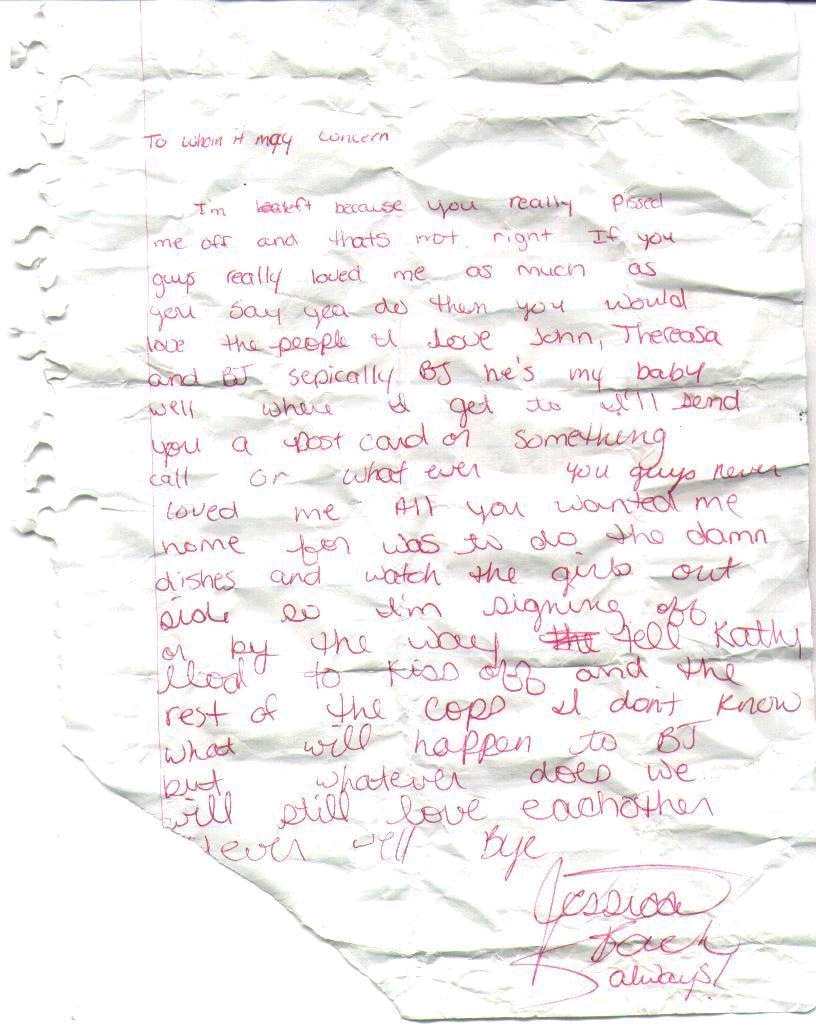 To whom it may concern
I'm left because you really pissed
me off and thats not right If you
guys really loved me as much as
you say yea do then you would
love the people I love John, Thereasa
and BJ sepically BJ he's my baby
well where I get to I'll send
you a post card or something
call or what ever you guys never
loved me All you wanted me
home for was to do the damn
dishes and watch the girls out
side so I'm signing off
or by the way the tell Kathy
to kiss off and the
rest of the cops I don't know
what will happen to BJ
but whatever does we
will still love eachother
ever well Bye
Jessica
always!